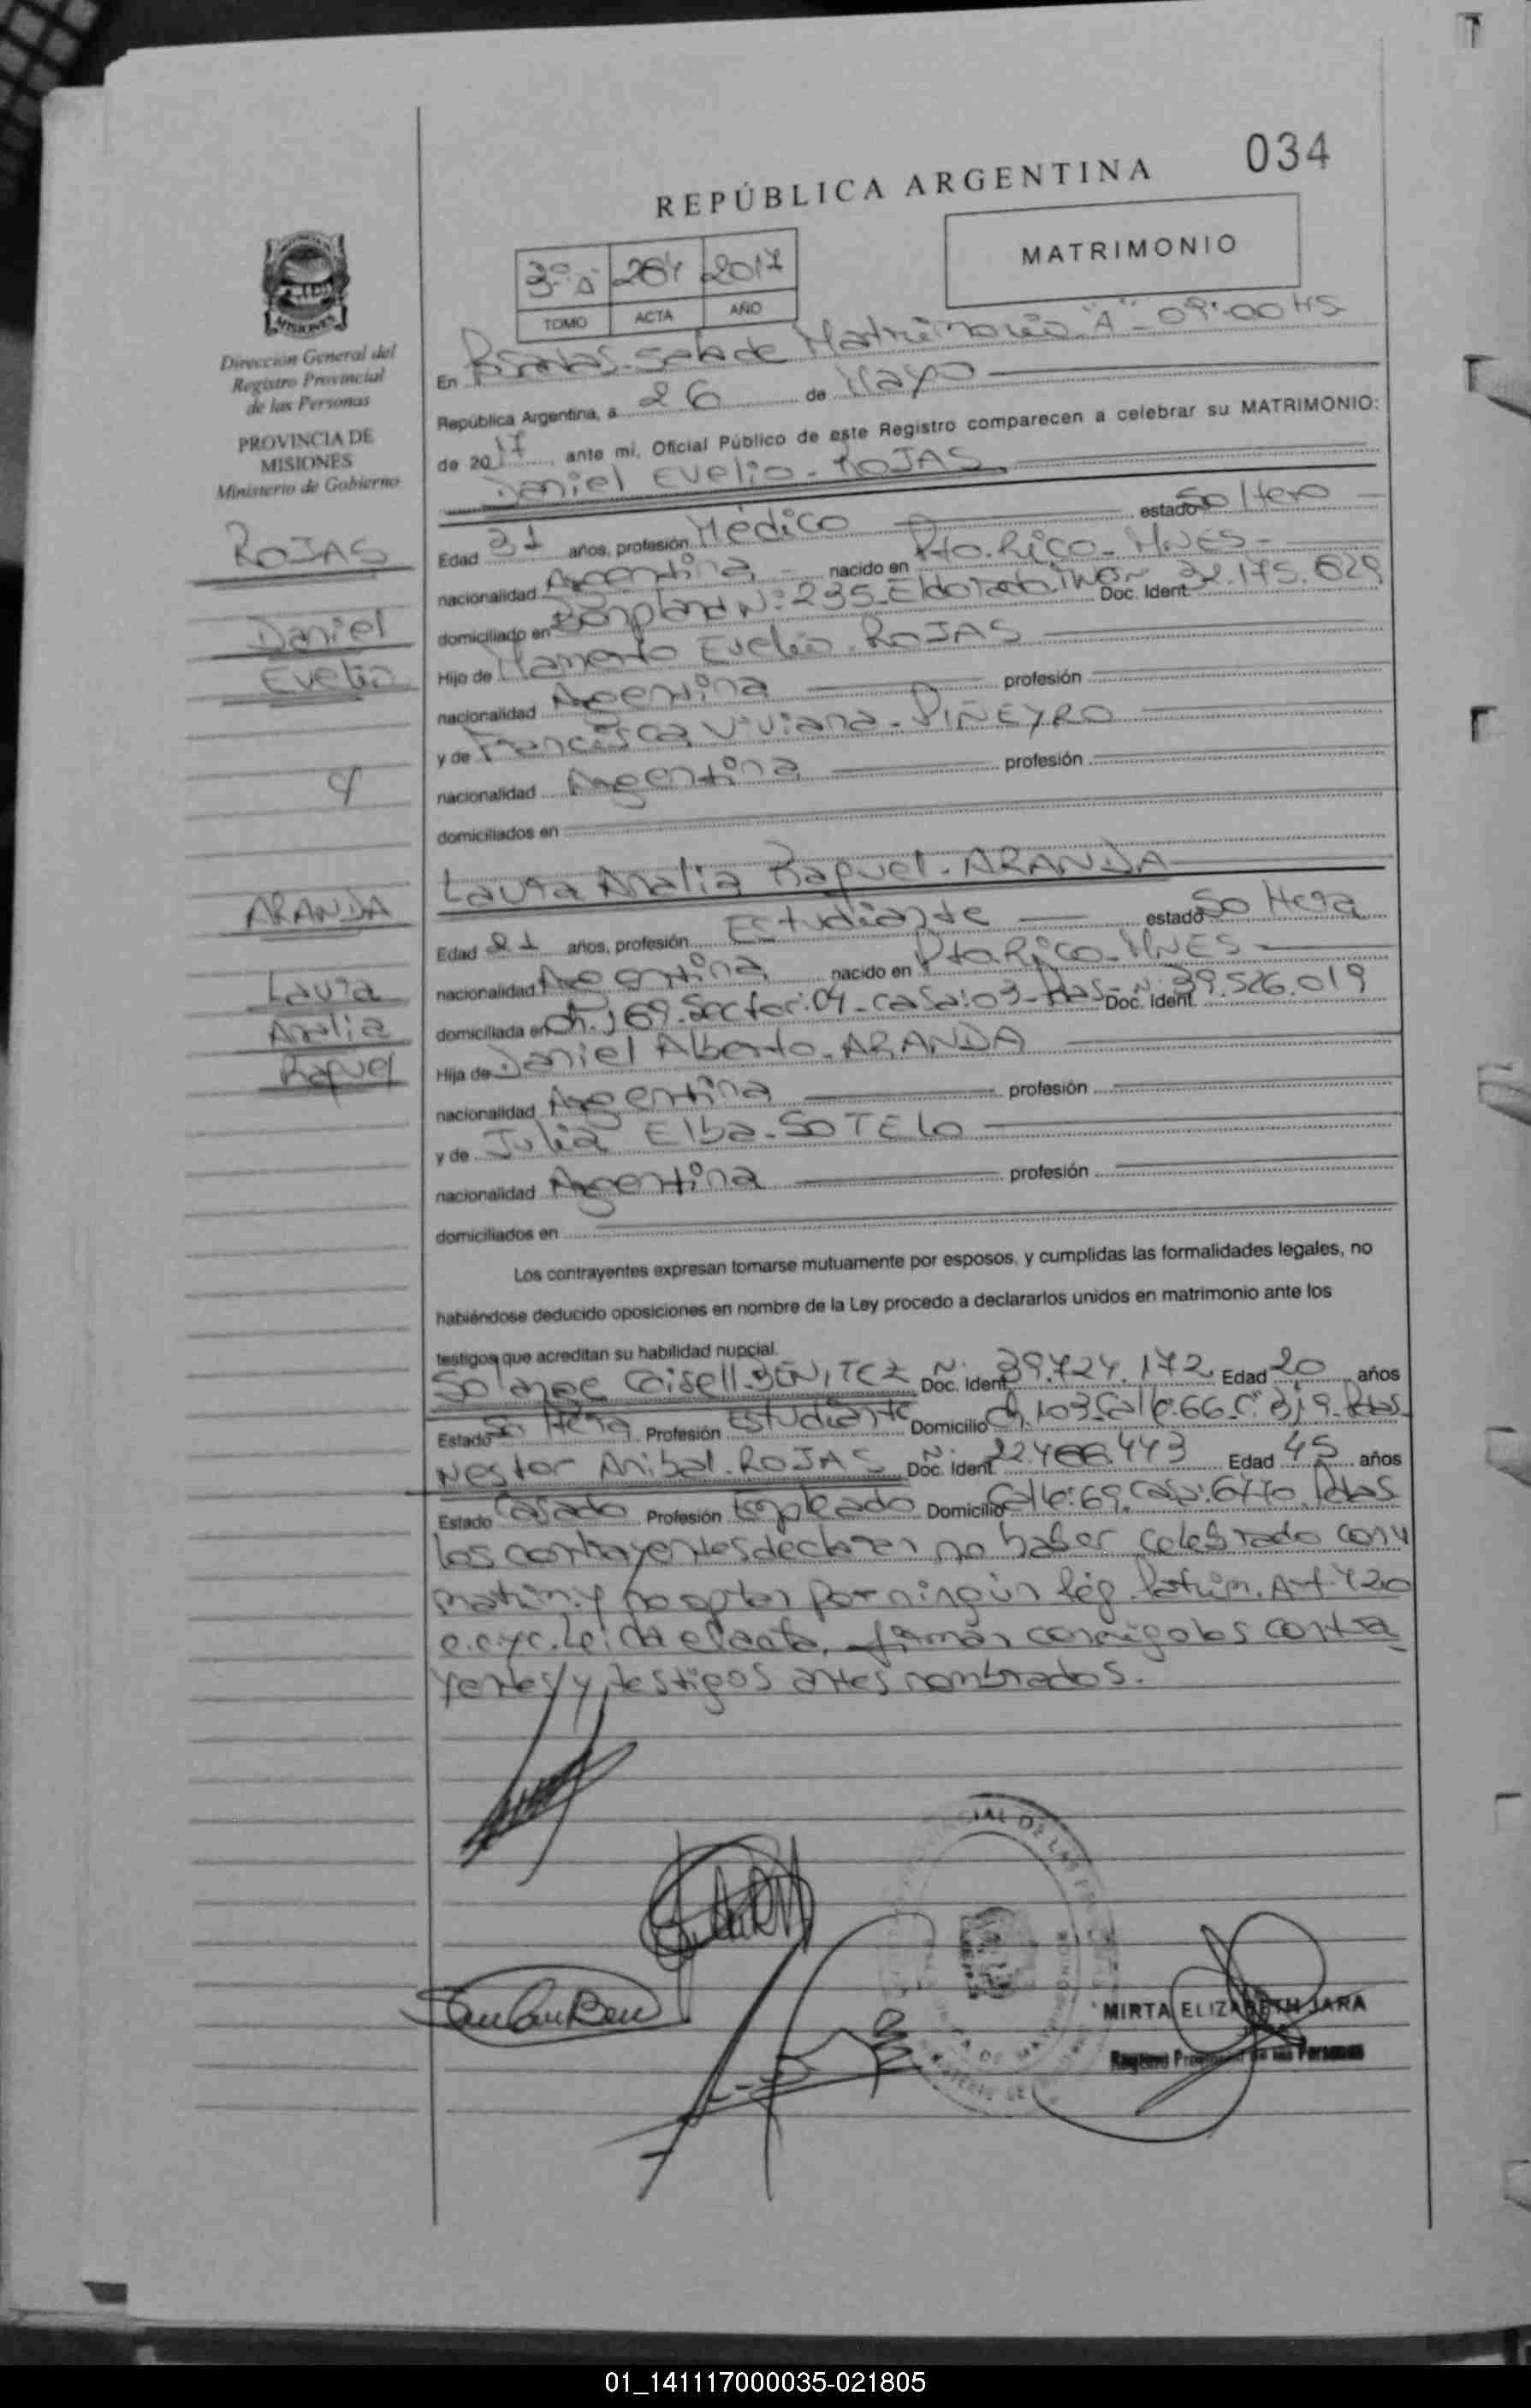 034
REPÚBLICA ARGENTINA
MATRIMONIO
3º A 264 2017
TOMO ACTA AÑO
MISIONES
Dirección General del
Registro Provincial
de las Personas
PROVINCIA DE
MISIONES
Ministerio de Gobierno
En Posadas. Sala de Matrimonio "A" - 09:00 HS
República Argentina, a 26 de Mayo
de 2017, ante mi, Oficial Público de este Registro comparecen a celebrar su MATRIMONIO:
Daniel Evelio - ROJAS
ROJAS
Daniel
Evelio
Edad 31 años, profesión Médico estado Soltero
nacionalidad Argentina nacido en Pto. Rico - MNES -
domiciliado en Bonpland Nº: 235 - Eldorado Doc. Ident. 32.175.629
Hijo de Mamerto Evelio - ROJAS
nacionalidad Argentina profesión
y de Francisca Viviana - PIÑEYRO
nacionalidad Argentina profesión
domiciliados en
y
ARANDA
Laura
Analia
Raquel
Laura Analia Raquel - ARANDA
Edad 21 años, profesión Estudiante estado Soltera
nacionalidad Argentina nacido en Pto. Rico - MNES
domiciliada en Ch. 169. Sector: 04 - casa: 03 - Pdas - Doc. Ident. Nº 39.526.019
Hija de Daniel Alberto - ARANDA
nacionalidad Argentina profesión
y de Julia Elba - SOTELO
nacionalidad Argentina profesión
domiciliados en
Los contrayentes expresan tomarse mutuamente por esposos, y cumplidas las formalidades legales, no
habiéndose deducido oposiciones en nombre de la Ley procedo a declararlos unidos en matrimonio ante los
testigos que acreditan su habilidad nupcial.
Solange Gisell - BENITEZ Doc. Ident. Nº 39.724.172 Edad 20 años
Estado Soltera Profesión Estudiante Domicilio Ch. 103 - Calle: 66 - Pdas
Nestor Anibal - ROJAS Doc. Ident. Nº 22.466.443 Edad 45 años
Estado Casado Profesión Empleado Domicilio Calle: 69 - Casa: 6770 - Pdas
los contrayentes declaran no haber celebrado conv
matrim. y no optar por ningún rég. Patrim. Art 420
c.c.yc. Leída el acta, firman conmigo los contra
yentes y testigos antes nombrados.
MIRTA ELIZABETH JARA
Registro Provincial de las Personas
01_141117000035-021805